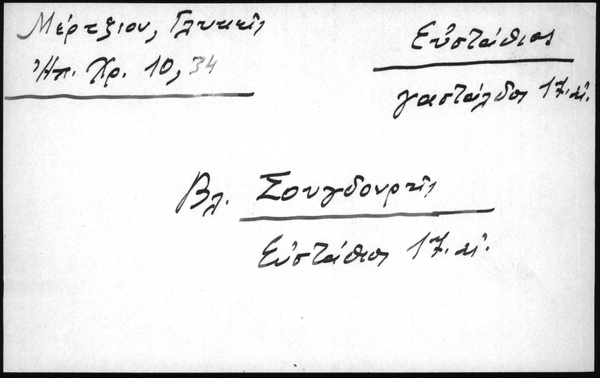 Μέρτζιου, Γλυκκεῖς
Ἠπ. Χρ. 10, 34
Εὐστάθιος
γαστάλδος 17. αἰ.
Βλ. Σουγδουρῆς
Εὐστάθιος 17. αἰ.